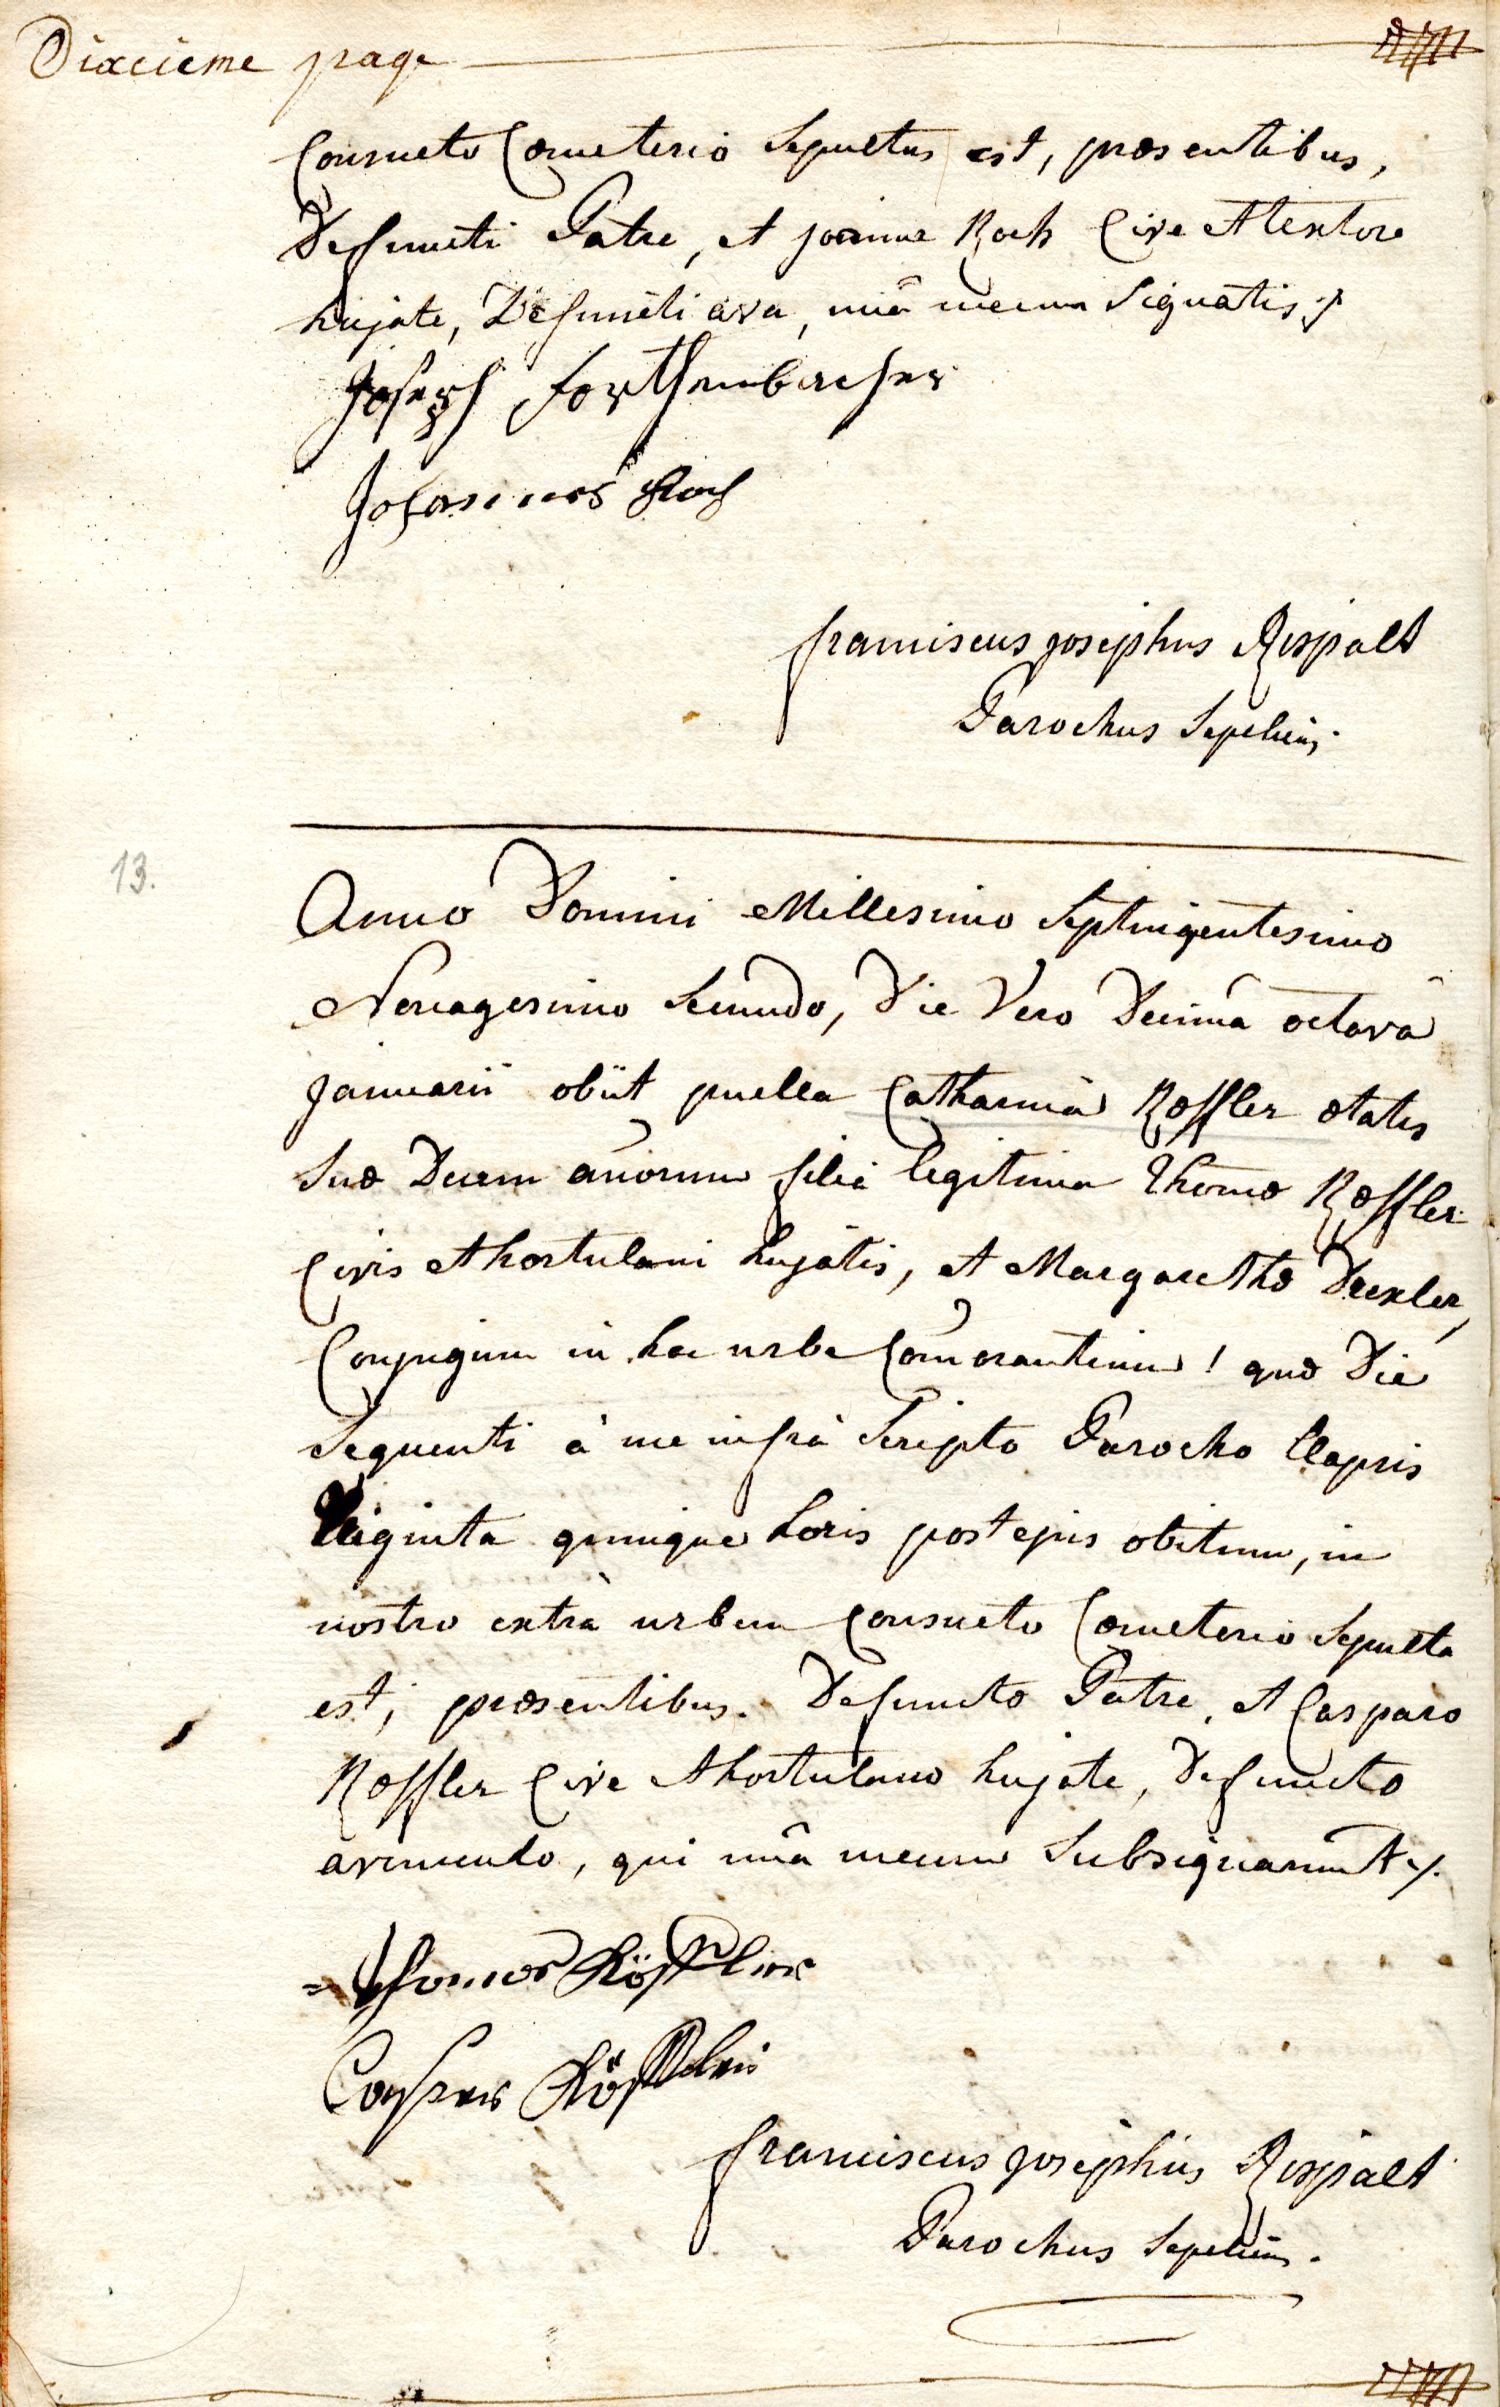 Dixcieme page
Consueto Cœmeterio Sepultus est, præsentibus,
Defuncti Patre, et joanne Koch Cive et textore
hujate, Defuncti avo, unà mecum Signatis ./.
Joseph forthenbacher
Johannes Koch
franciscus josephus Rispalt
Parochus Sepeliens.
13.
Anno Domini Millesimo Septingentesimo
Nonagesimo Secundo, Die Vero Decimâ octavâ
januarii obiit puella Catharina Kœffler ætatis
suæ Decem añorum filia legitima Thomæ Kœffler
Civis et hortulani hujatis, et Margarethæ Drexler,
Conjugum in hac urbe Com̃orantium! quæ Die
Sequenti à me infrà Scripto Parocho Elapsis
Viginta quinque horis post ejus obitum, in
nostro extrà urbem Consueto Cœmeterio Sepulta
est; præsentibus. Defunctæ Patre, et Casparo
Kœffler Cive et hortulano hujate, Defunctæ
avunculo, qui unâ mecum Subsignarunt ./.
Thomas Köffler
Casper Köffler
franciscus josephus Rispalt
Parochus Sepeliens.